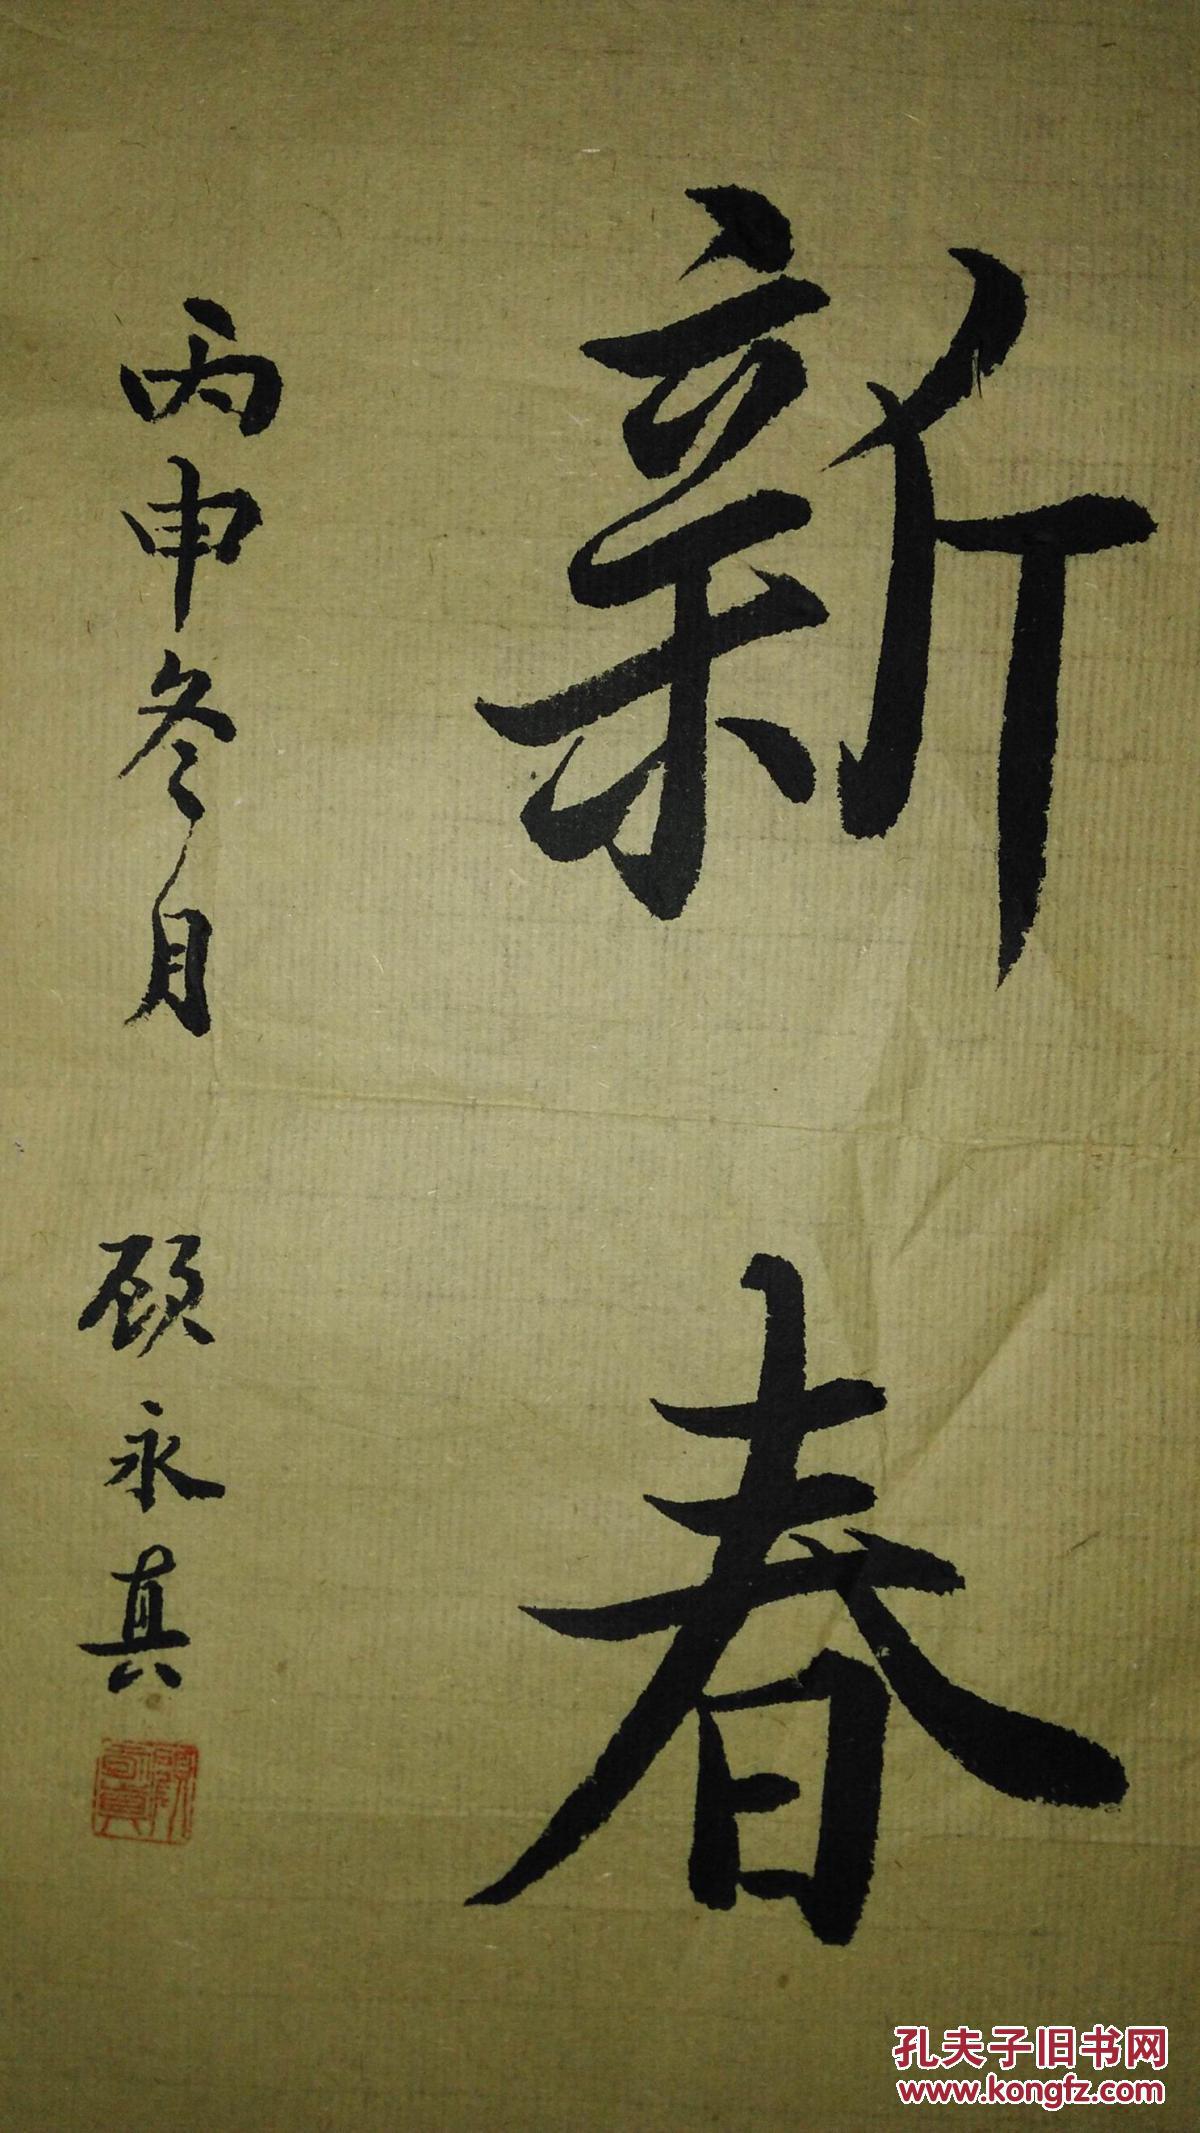 新春
丙申冬月 顾永真
孔夫子旧书网
www.kongfz.com